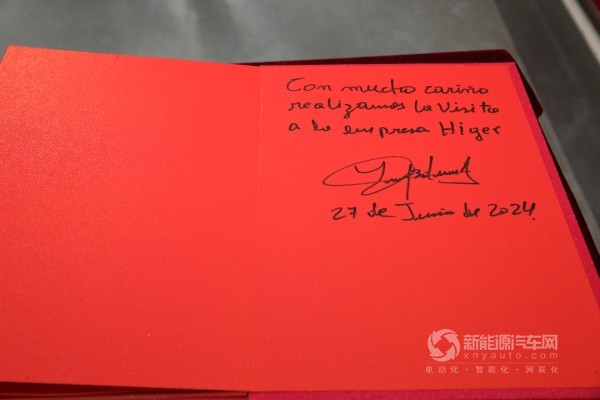 Con mucho cariño
realizamos la Visita
a la empresa Higer
27 de Junio de 2024.
新能源汽车网
xnyauto.com
电动化·智能化·网联化